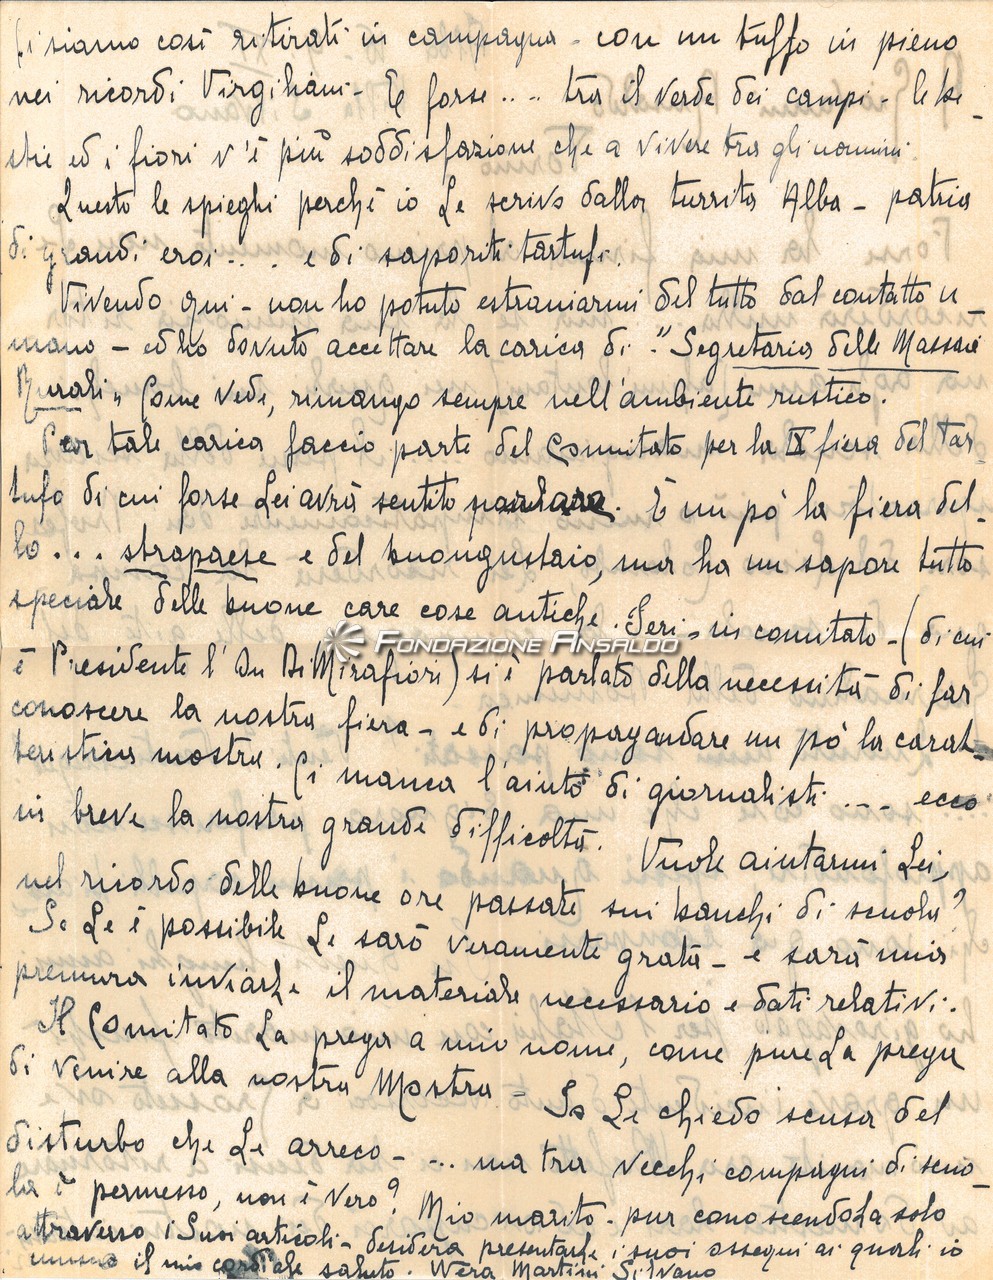 Ci siamo così ritirati in campagna - con un tuffo in pieno
nei ricordi Virgiliani - E forse .. - tra il verde dei campi - le be
stie ed i fiori v'è più soddisfazione che a vivere tra gli uomini.
Questo le spieghi perchè io Le scrivo dalla turrita Alba - patria
di grandi eroi - .. e di saporiti tartufi.
Vivendo qui - non ho potuto estraniarmi del tutto dal contatto u
mano - ed ho dovuto accettare la carica di "Segretaria delle Massaie
Rurali" Come vede, rimango sempre nell'ambiente rustico.
Per tale carica faccio parte del Comitato per la IX fiera del Tar
tufo di cui forse Lei avrà sentito parlare. È un pò la fiera del-
lo ... strapaese e del buongustaio, ma ha un sapore tutto
speciale delle buone care cose antiche. Ieri - in comitato - (di cui
è Presidente l'On Di Mirafiori) si è parlato della necessità di far
conoscere la nostra fiera - e di propagandare un pò la carat-
teristica mostra. Ci manca l'aiuto di giornalisti ... ecco
in breve la nostra grande difficoltà. Vuole aiutarmi Lei,
nel ricordo delle buone ore passate sui banchi di scuola?
Se Le è possibile Le sarò veramente grata - e sarà mia
premura inviarLe il materiale necessario e dati relativi.
Il Comitato La prega a mio nome, come pure La prega
di venire alla nostra Mostra = Io Le chiedo scusa del
disturbo che Le arreco - .. ma tra vecchi compagni di scuo-
la è permesso, non è vero? Mio marito - pur conoscendoLa solo
attraverso i Suoi articoli - desidera presentarLe i suoi ossequi ai quali io
unisco il mio cordiale saluto. Wera Martini Silvano
FONDAZIONE ANSALDO